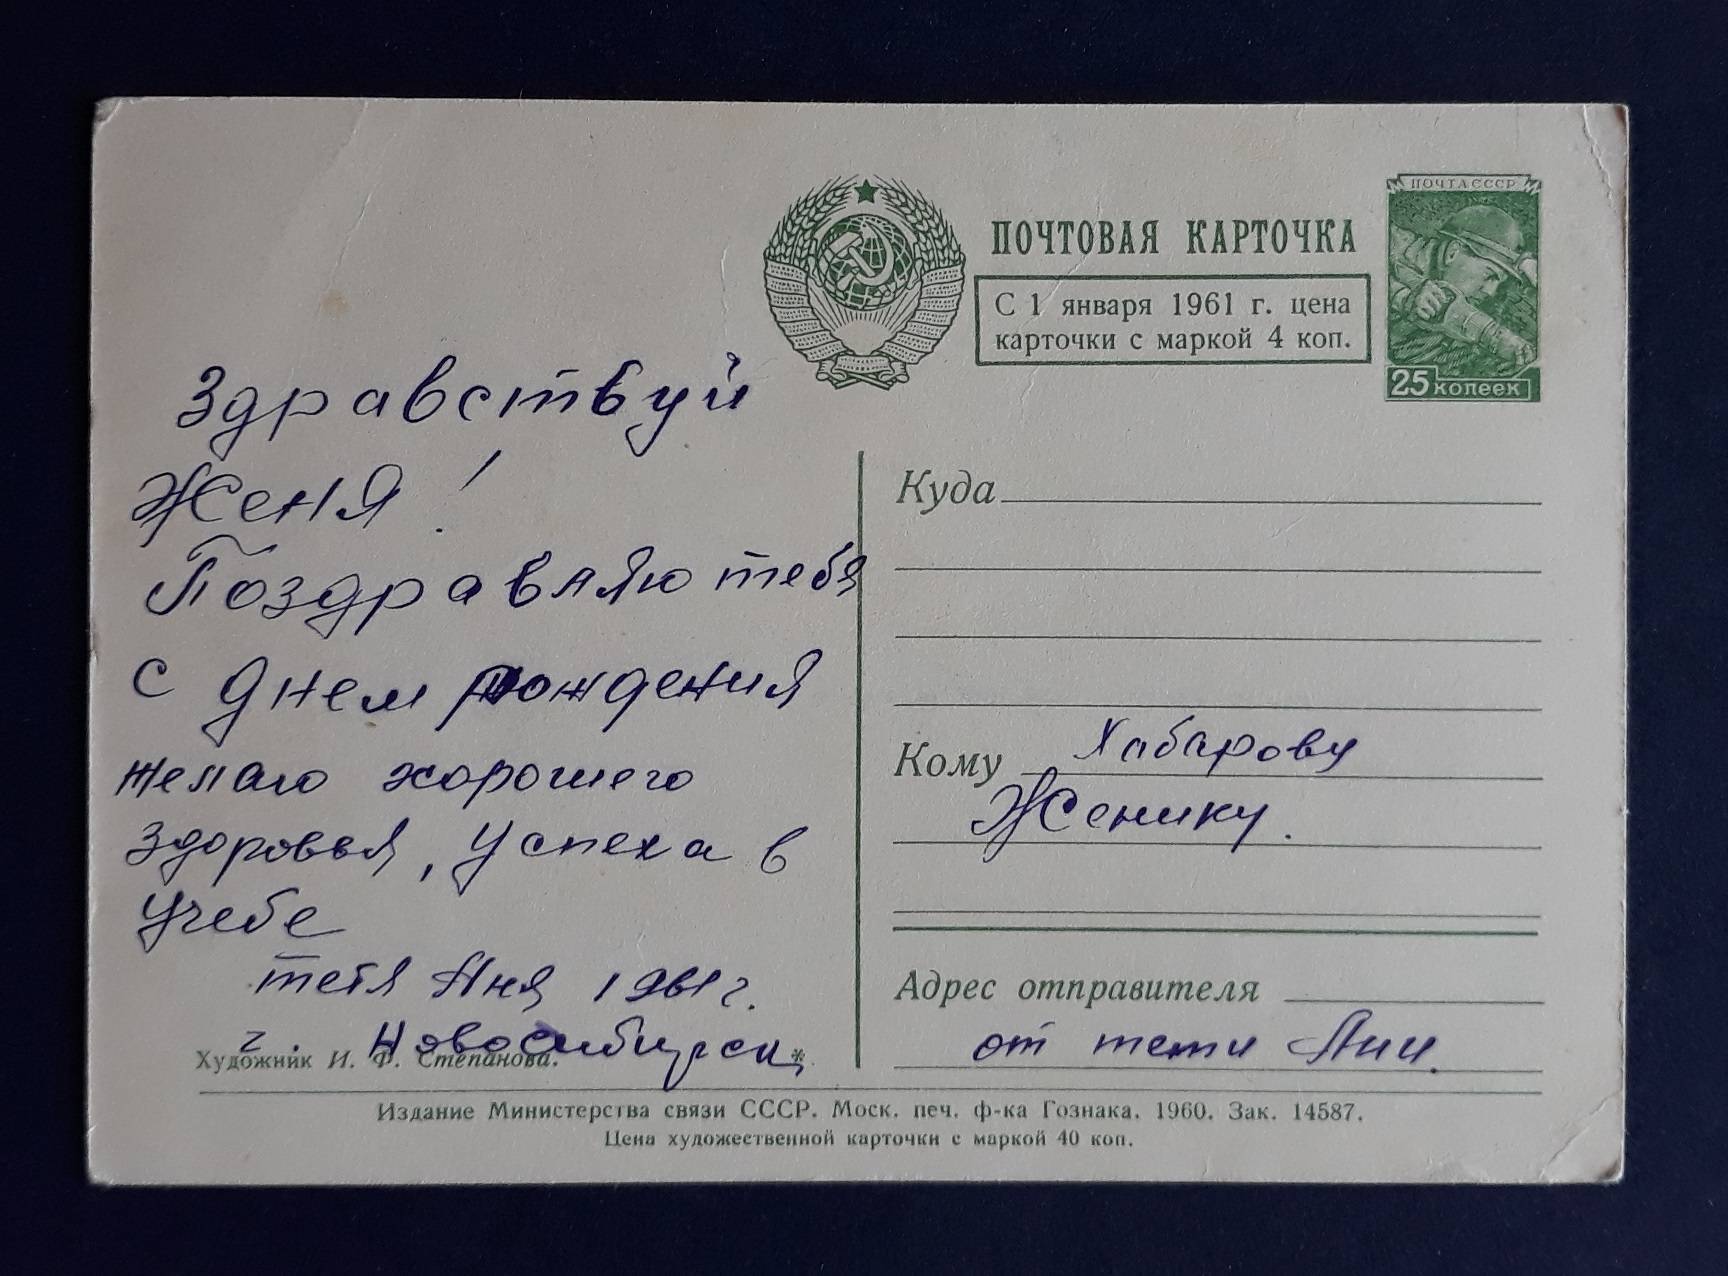 ПОЧТА СССР
ПОЧТОВАЯ КАРТОЧКА
С 1 января 1961 г. цена
карточки с маркой 4 коп.
25 копеек
Здравствуй
Женя!
Поздравляю тебя
с днем рождения
желаю хорошего
здоровья, успеха в
учебе
тетя Аня 1961 г.
г. Новосибирск
Художник И. Ф. Степанова. *
Куда
Кому Хабарову
Женику.
Адрес отправителя
от тети Ани.
Издание Министерства связи СССР. Моск. печ. ф-ка Гознака. 1960. Зак. 14587.
Цена художественной карточки с маркой 40 коп.